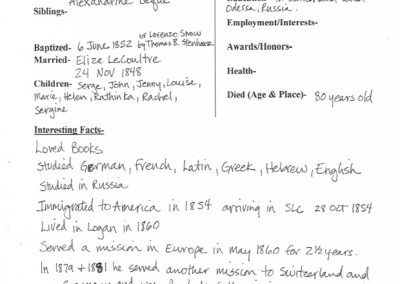 Alexandrine
Odessa, Russia.
Siblings-
Employment/Interests-
or Lorenzo Snow
Baptized- 6 June 1852 by Thomas B. Stenhouse
Awards/Honors-
Married- Elize LeCoultre
24 NOV 1848
Health-
Children- Serge, John, Jenny, Louise,
Marie, Helen, Rathinka, Rachel,
Sergine
Died (Age & Place)- 80 years old
Interesting Facts-
Loved Books
Studied German, French, Latin, Greek, Hebrew, English
Studied in Russia
Immigrated to America in 1854 arriving in SLC 28 OCT 1854
Lived in Logan in 1860
Served a mission in Europe in may 1860 for 2½ years.
In 1879 + 1881 he served another mission to Switzerland and